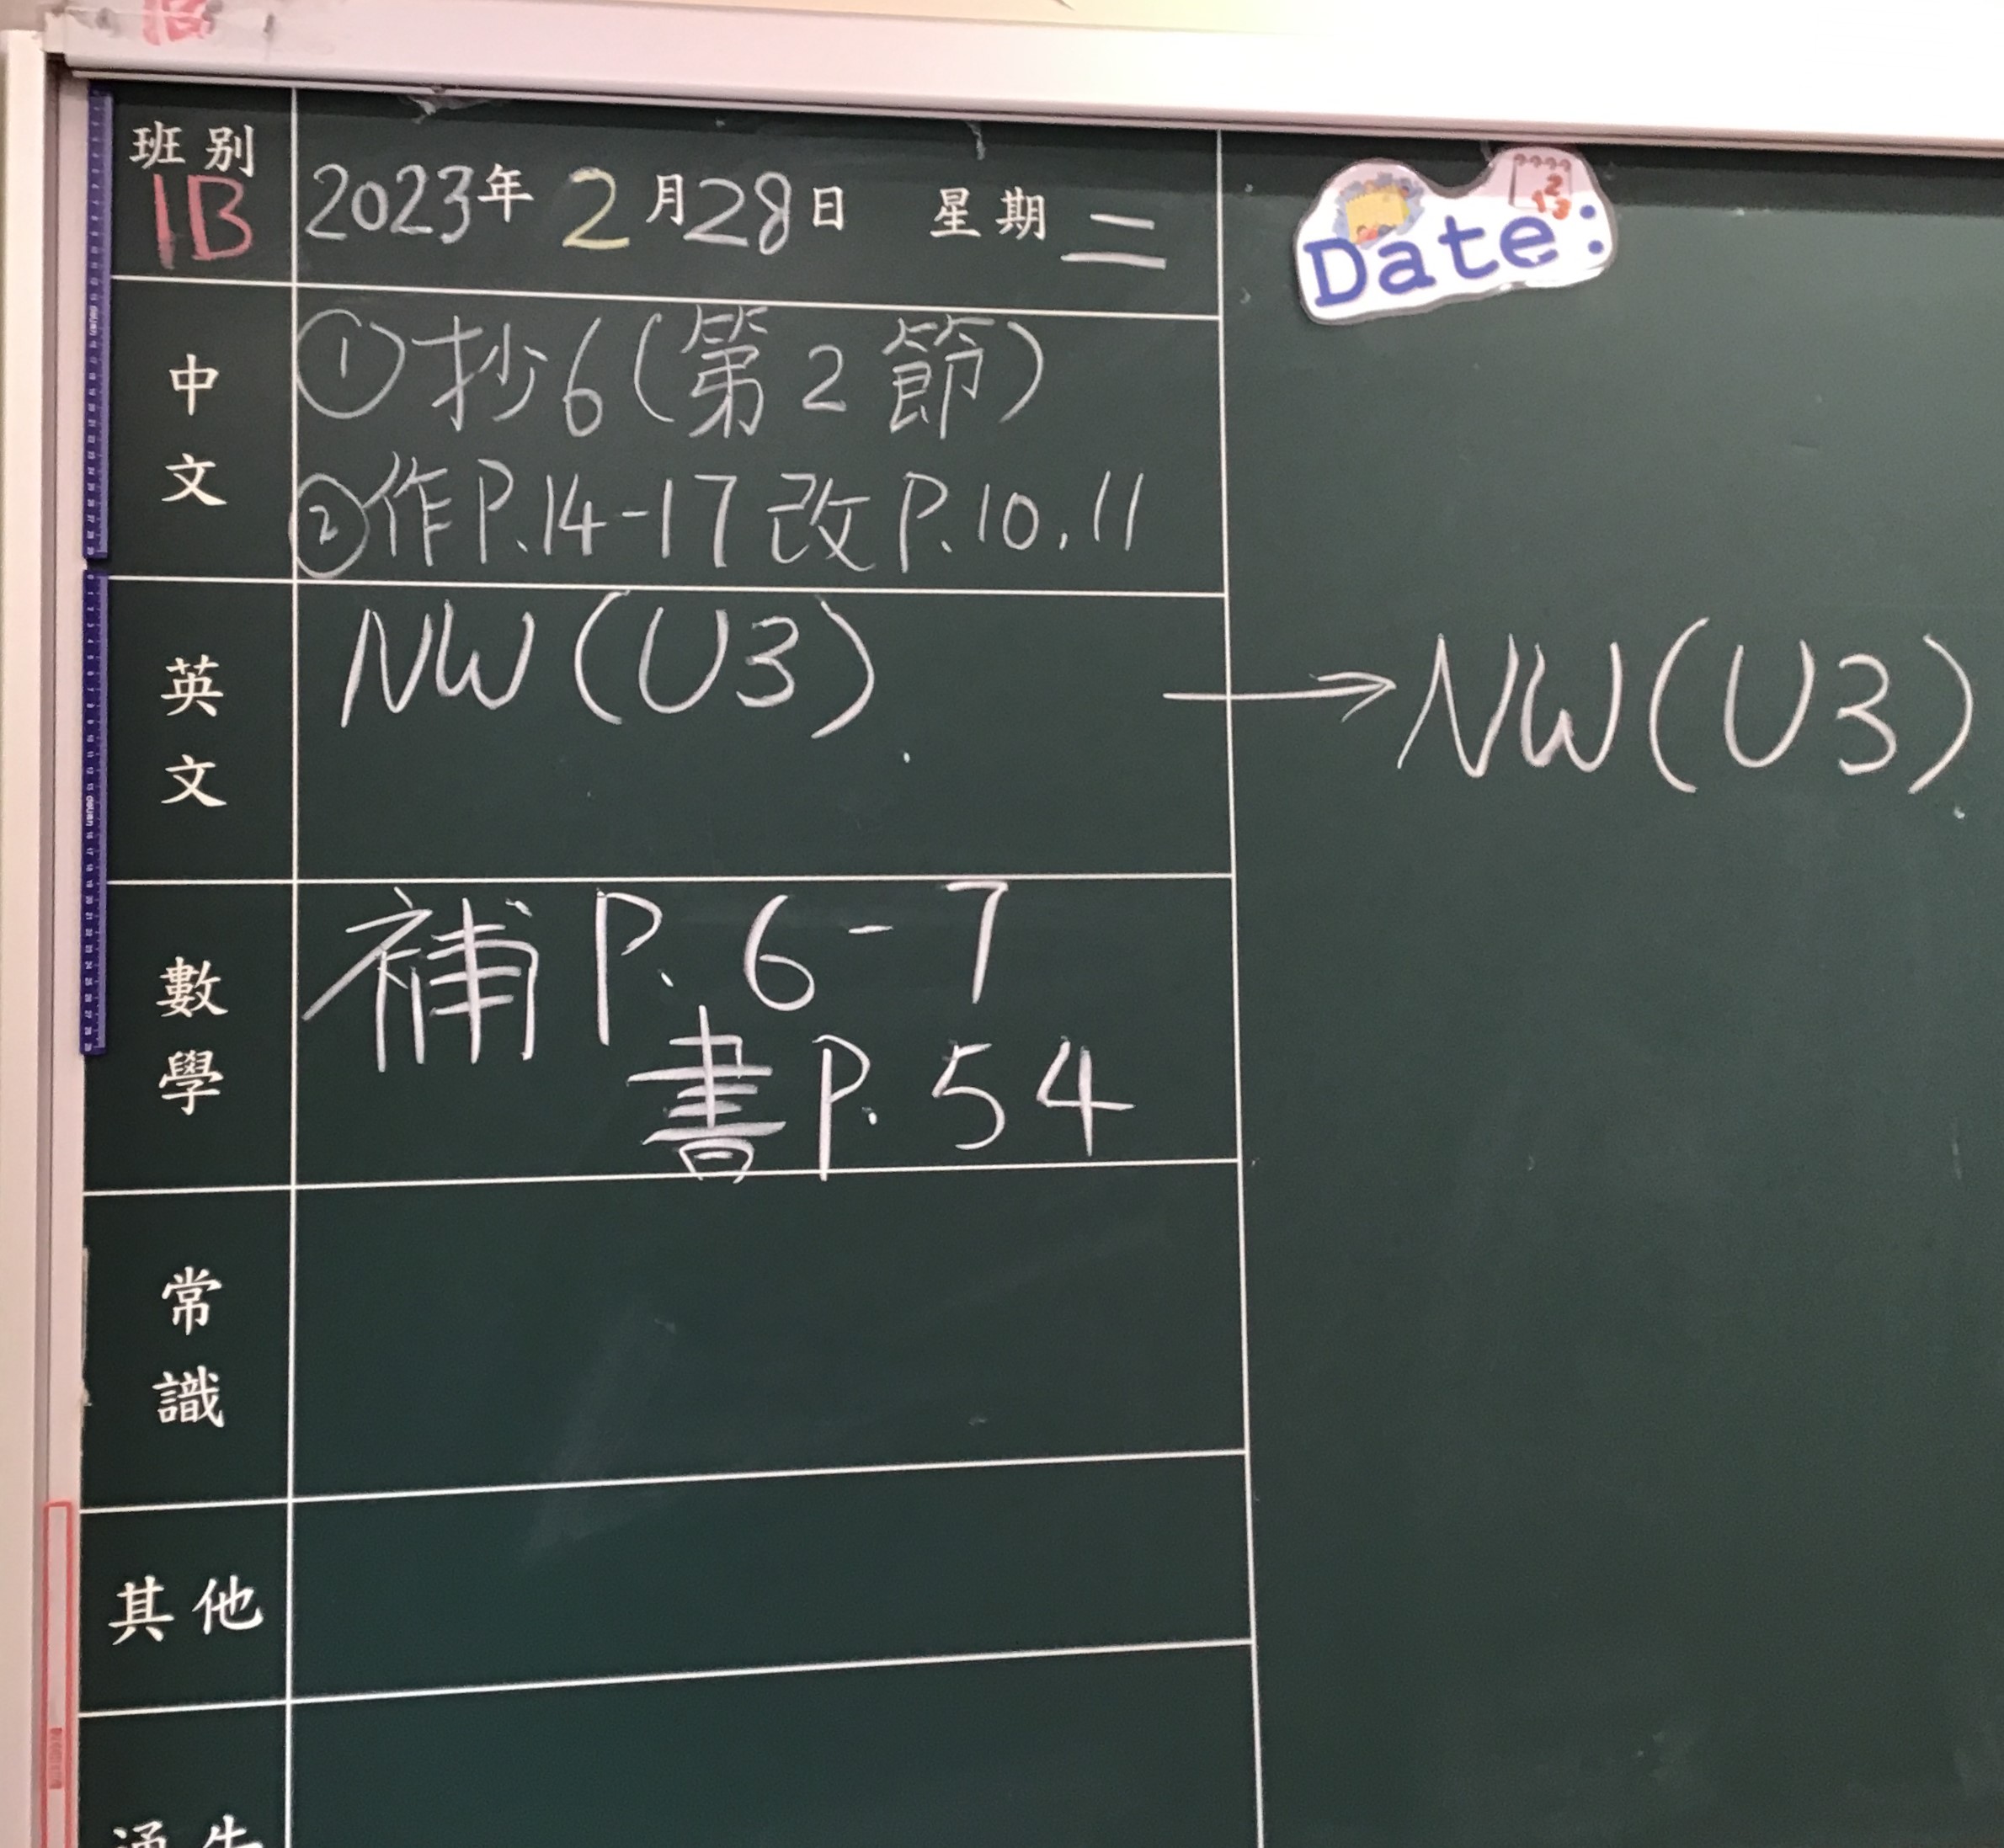 班別
1B
2023年 2月28日 星期二
Date:
中文
①抄6(第2節)
②作P.14-17 改P.10,11
英文
NW(U3).
→NW(U3).
數學
補P.6-7
書P.54
常識
其他